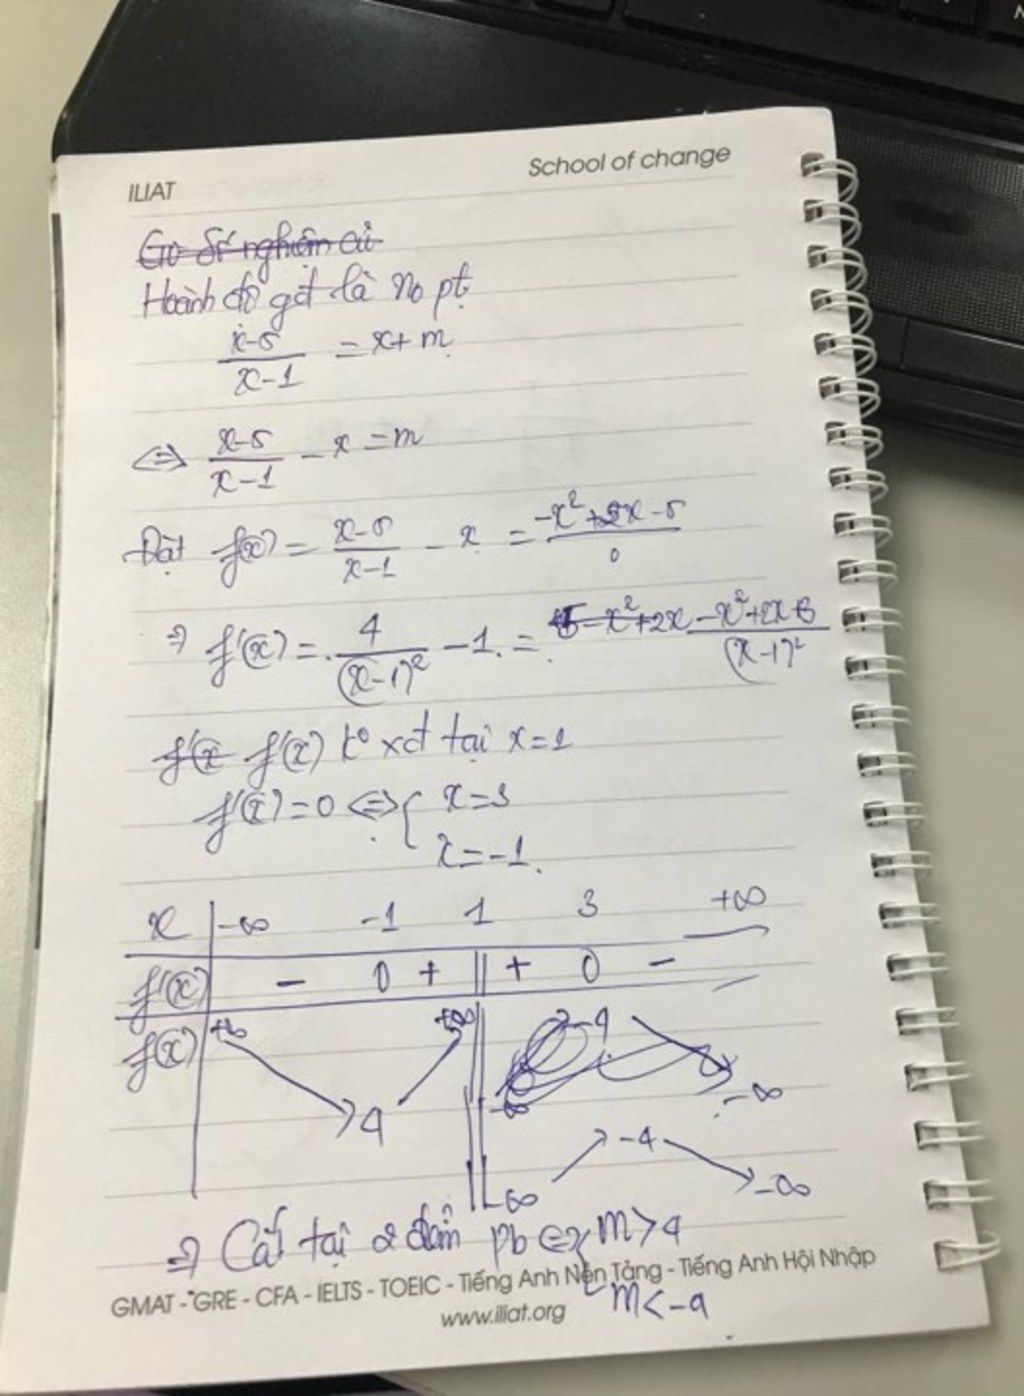 ILIAT
School of change
Hoành độ gđ là No pt
x-5 / x-1 = x+m
⇔ x-5 / x-1 - x = m
Đặt f(x) = x-5 / x-1 - x = -x²+2x-5 /
⇒ f'(x) = 4 / (x-1)² - 1 = -x²+2x+3 / (x-1)²
f'(x) k° xđ tại x=1
f'(x)=0 ⇔ { x=3
x=-1
x -∞ -1 1 3 +∞
f'(x) - 0 + || + 0 -
f(x) +∞ 4 +∞ -∞ -4 -∞
-∞ -4 -∞
⇒ Cắt tại 2 điểm pb ⇔ { m>4
m<-4
GMAT - GRE - CFA - IELTS - TOEIC - Tiếng Anh Nền Tảng - Tiếng Anh Hội Nhập
www.iliat.org